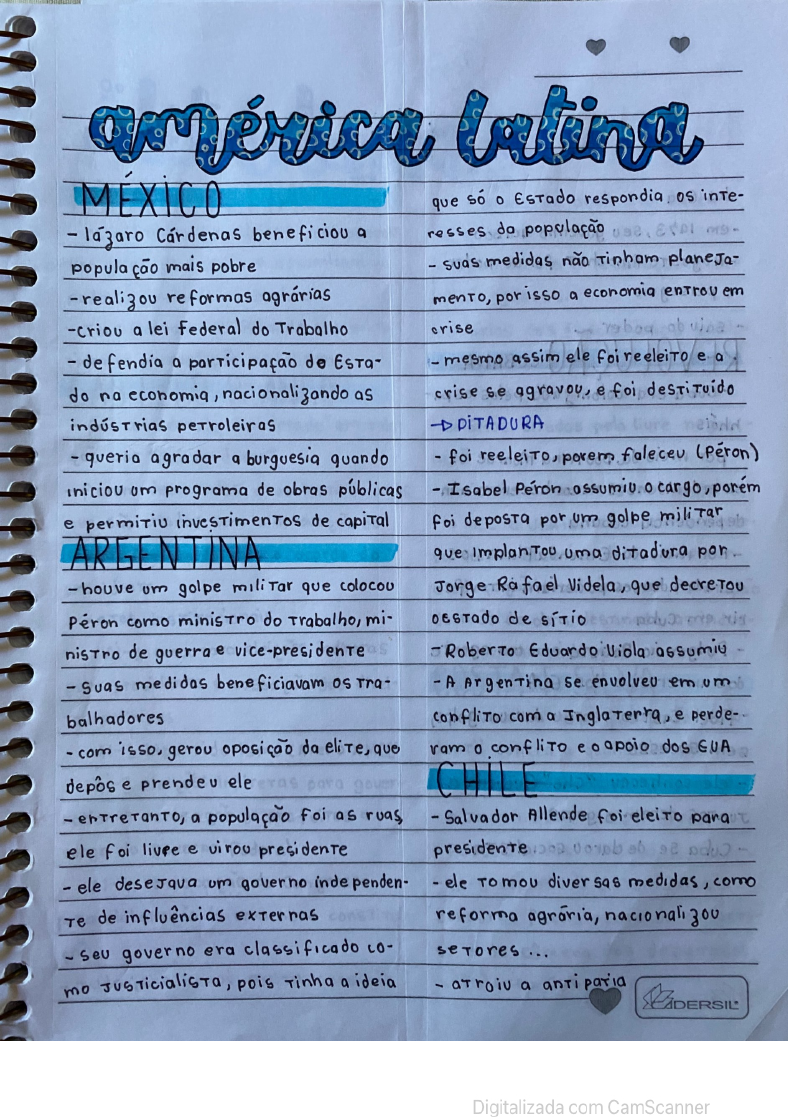 américa latina
MÉXICO
- lázaro Cárdenas beneficiou a
população mais pobre
- realizou reformas agrárias
- criou a lei Federal do Trabalho
- defendia a participação do Esta-
do na economia, nacionalizando as
indústrias petroleiras
- queria agradar a burguesia quando
iniciou um programa de obras públicas
e permitiu investimentos de capital
ARGENTINA
- houve um golpe militar que colocou
Péron como ministro do Trabalho, mi-
nistro de guerra e vice-presidente
- suas medidas beneficiavam os tra-
balhadores
- com isso, gerou oposição da elite, que
depôs e prendeu ele
- entretanto, a população foi as ruas,
ele foi livre e virou presidente
- ele desejava um governo independen-
te de influências externas
- seu governo era classificado co-
mo justicialista, pois tinha a ideia
que só o Estado respondia os inte-
resses da população
- suas medidas não tinham planeja-
mento, por isso a economia entrou em
crise
- mesmo assim ele foi reeleito e a
crise se agravou, e foi destituído
→ DITADURA
- foi reeleito, porem faleceu (Péron)
- Isabel Péron assumiu o cargo, porém
foi deposta por um golpe militar
que implantou uma ditadura por
Jorge Rafael Videla, que decretou
o estado de sítio
- Roberto Eduardo Viola assumiu
- A Argentina se envolveu em um
conflito com a Inglaterra, e perde-
ram o conflito e o apoio dos EUA
CHILE
- Salvador Allende foi eleito para
presidente
- ele tomou diversas medidas, como
reforma agrária, nacionalizou
setores ...
- atraiu a antipatia
DERSIL
Digitalizada com CamScanner